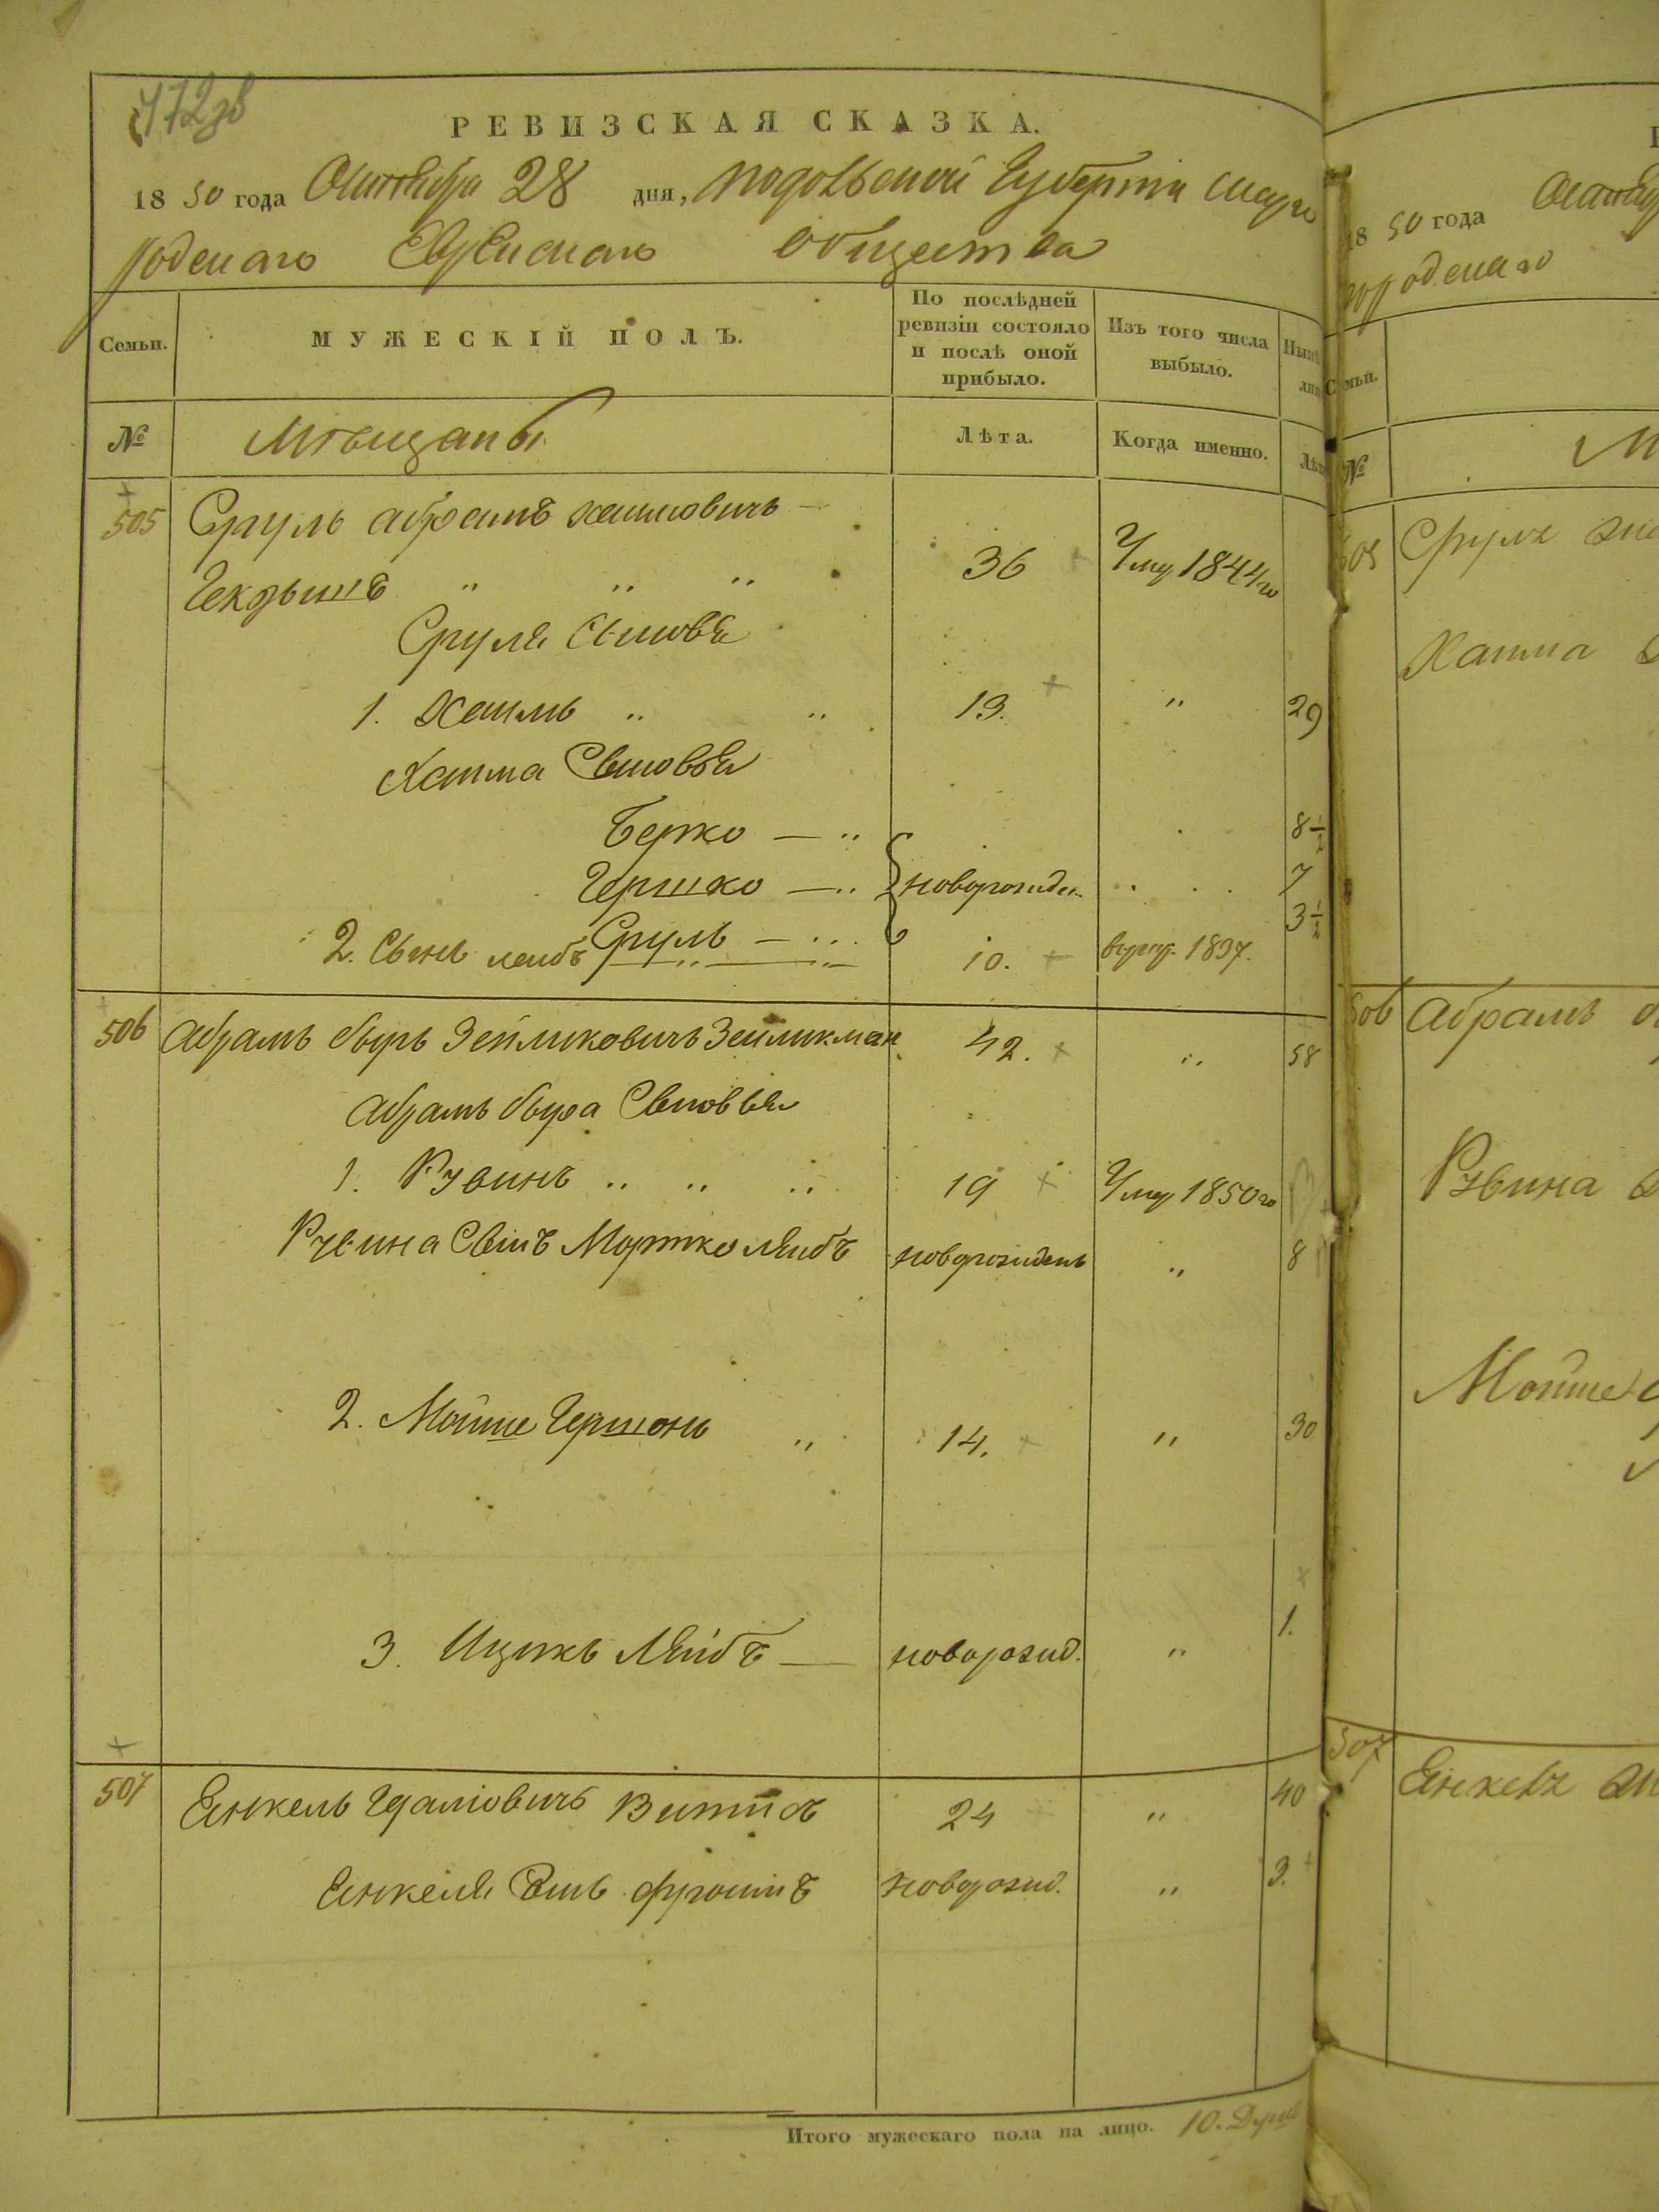 172 об
РЕВИЗСКАЯ СКАЗКА.
1850 года Октября 28 дня, Подольской Губерніи Шарго
родскаго Еврейскаго Общества
Семьи.
МУЖЕСКІЙ ПОЛЪ.
По послѣдней ревизіи состояло и послѣ оной прибыло.
Изъ того числа выбыло.
№
Мѣщаны
Лѣта.
Когда именно.
505 Сруль Абрамъ Хаимовичъ —
36 Умер 1844го
Сруля Сыновья
1. Хаимъ " " 13. " 29
Хаима Сыновья
Берко — " 8½
Гершко — " новорожден 7
Сруль — " 3½
2. Сынъ Лейбъ 10. 1837.
506 Абрамъ Беръ Зейликовичъ Зейликман 42. " 58
Абрамъ Бера Сыновья
1. Рувинъ " " " 19 Умер 1850го
Рувина Сынъ Мортко Лейбъ новорожденъ " 8
2. Мойше Гершонъ " 14. " 30
3. Ицикъ Лейбъ — новорожд. " 1.
507 Янкель 24 " 40
Янкеля Сынъ Фроимъ новорожд. " 3.
Итого мужескаго пола на лицо. 10. Душъ
1850 года
городскаго
Семьи.
№
505 Сруля
Хаима
506 Абрамъ
Рувина
Мойше
507 Янкеля